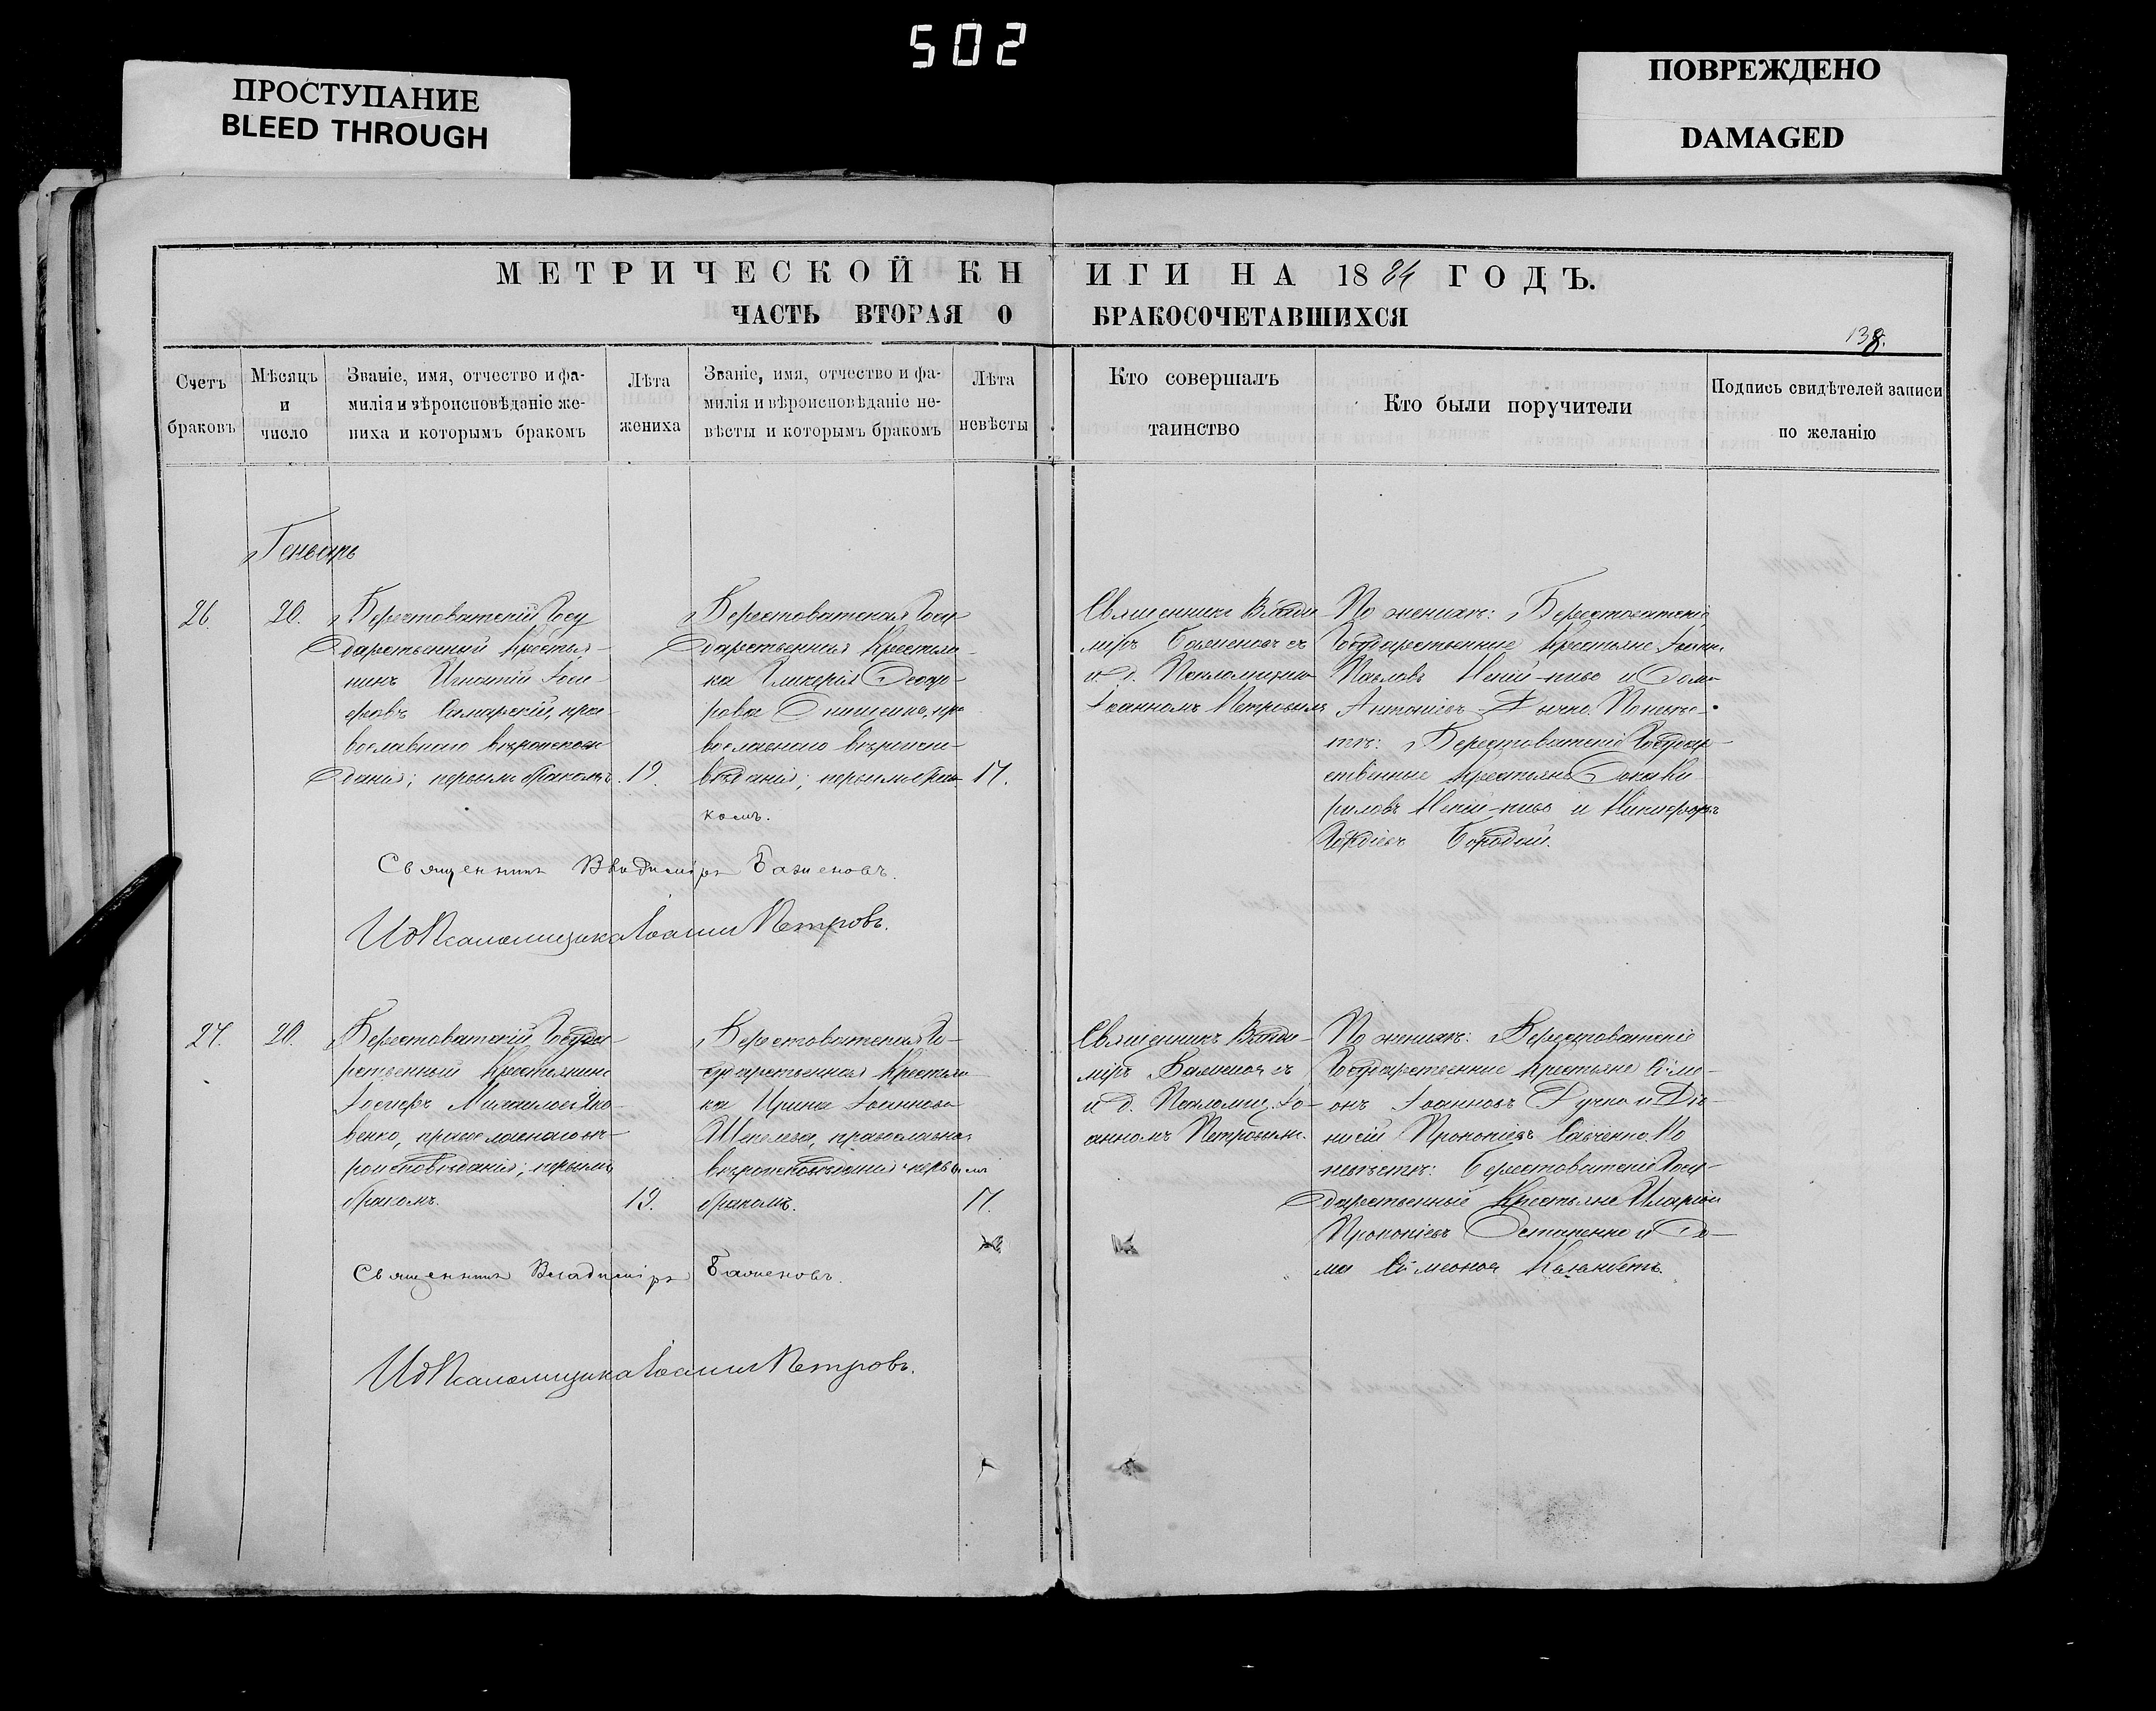 502
ПРОСТУПАНИЕ
BLEED THROUGH
ПОВРЕЖДЕНО
DAMAGED
МЕТРИЧЕСКОЙ КНИГИ НА 1884 ГОДЪ.
ЧАСТЬ ВТОРАЯ О БРАКОСОЧЕТАВШИХСЯ
138.
Счетъ
браковъ
Мѣсяцъ
и
число
Званіе, имя, отчество и фа-
милія и вѣроисповѣданіе же-
ниха и которымъ бракомъ
Лѣта
жениха
Званіе, имя, отчество и фа-
милія и вѣроисповѣданіе не-
вѣсты и которымъ бракомъ
Лѣта
невѣсты
Кто совершалъ
таинство
Кто были поручители
Подпись свидѣтелей записи
по желанію
Генварь
26.
20.
Берестоватскій Госу
дарственный Крестья-
нинъ Игнатій Іоси-
фовъ Самарскій, пра-
вославнаго вѣроисповѣ
данія; первымъ бракомъ.
19.
Берестоватская Госу
дарственная Крестьян-
ка Гликерія Ѳеодо-
рова Онищенко, пра
вославнаго вѣроиспо-
вѣданія; первымъ бра-
комъ.
17.
Священникъ Влади
міръ Баженовъ съ
и. д. Псаломщика
Іоанномъ Петровымъ
По женихѣ: Берестоватскіе
Государственные Крестьяне Іоаннъ
Павловъ и
Антоніевъ По невѣ-
стѣ: Берестоватскіе Государ-
ственные Крестьяне Лука Ки-
риловъ и Никифоръ
Бородай.
Священникъ Владиміръ Баженовъ.
И д Псаломщика Іоаннъ Петровъ.
27.
20.
Берестоватскій Государ-
рственный Крестьянинъ
Іосифъ Михаиловъ Яко-
венко, православнаго вѣ-
роисповѣданія; первымъ
бракомъ.
19.
Берестоватская Го-
сударственная Крестьян-
ка Ирина Іоаннова
Шепелева, православнаго
вѣроисповѣданія первымъ
бракомъ.
17.
Священникъ Влади-
міръ Баженовъ съ
и д. Псаломщ. Іо-
анномъ Петровымъ.
По женихѣ: Берестоватскіе
Государственные Крестьяне Симе-
онъ Іоанновъ Ручка и Діо-
нисій Прокопіевъ Савченко. По
невѣстѣ: Берестоватскіе Госу-
дарственные Крестьяне Иларіонъ
Прокопіевъ Остапенко и Ѳо-
ма Симеоновъ
Священникъ Владиміръ Баженовъ.
И д Псаломщика Іоаннъ Петровъ.